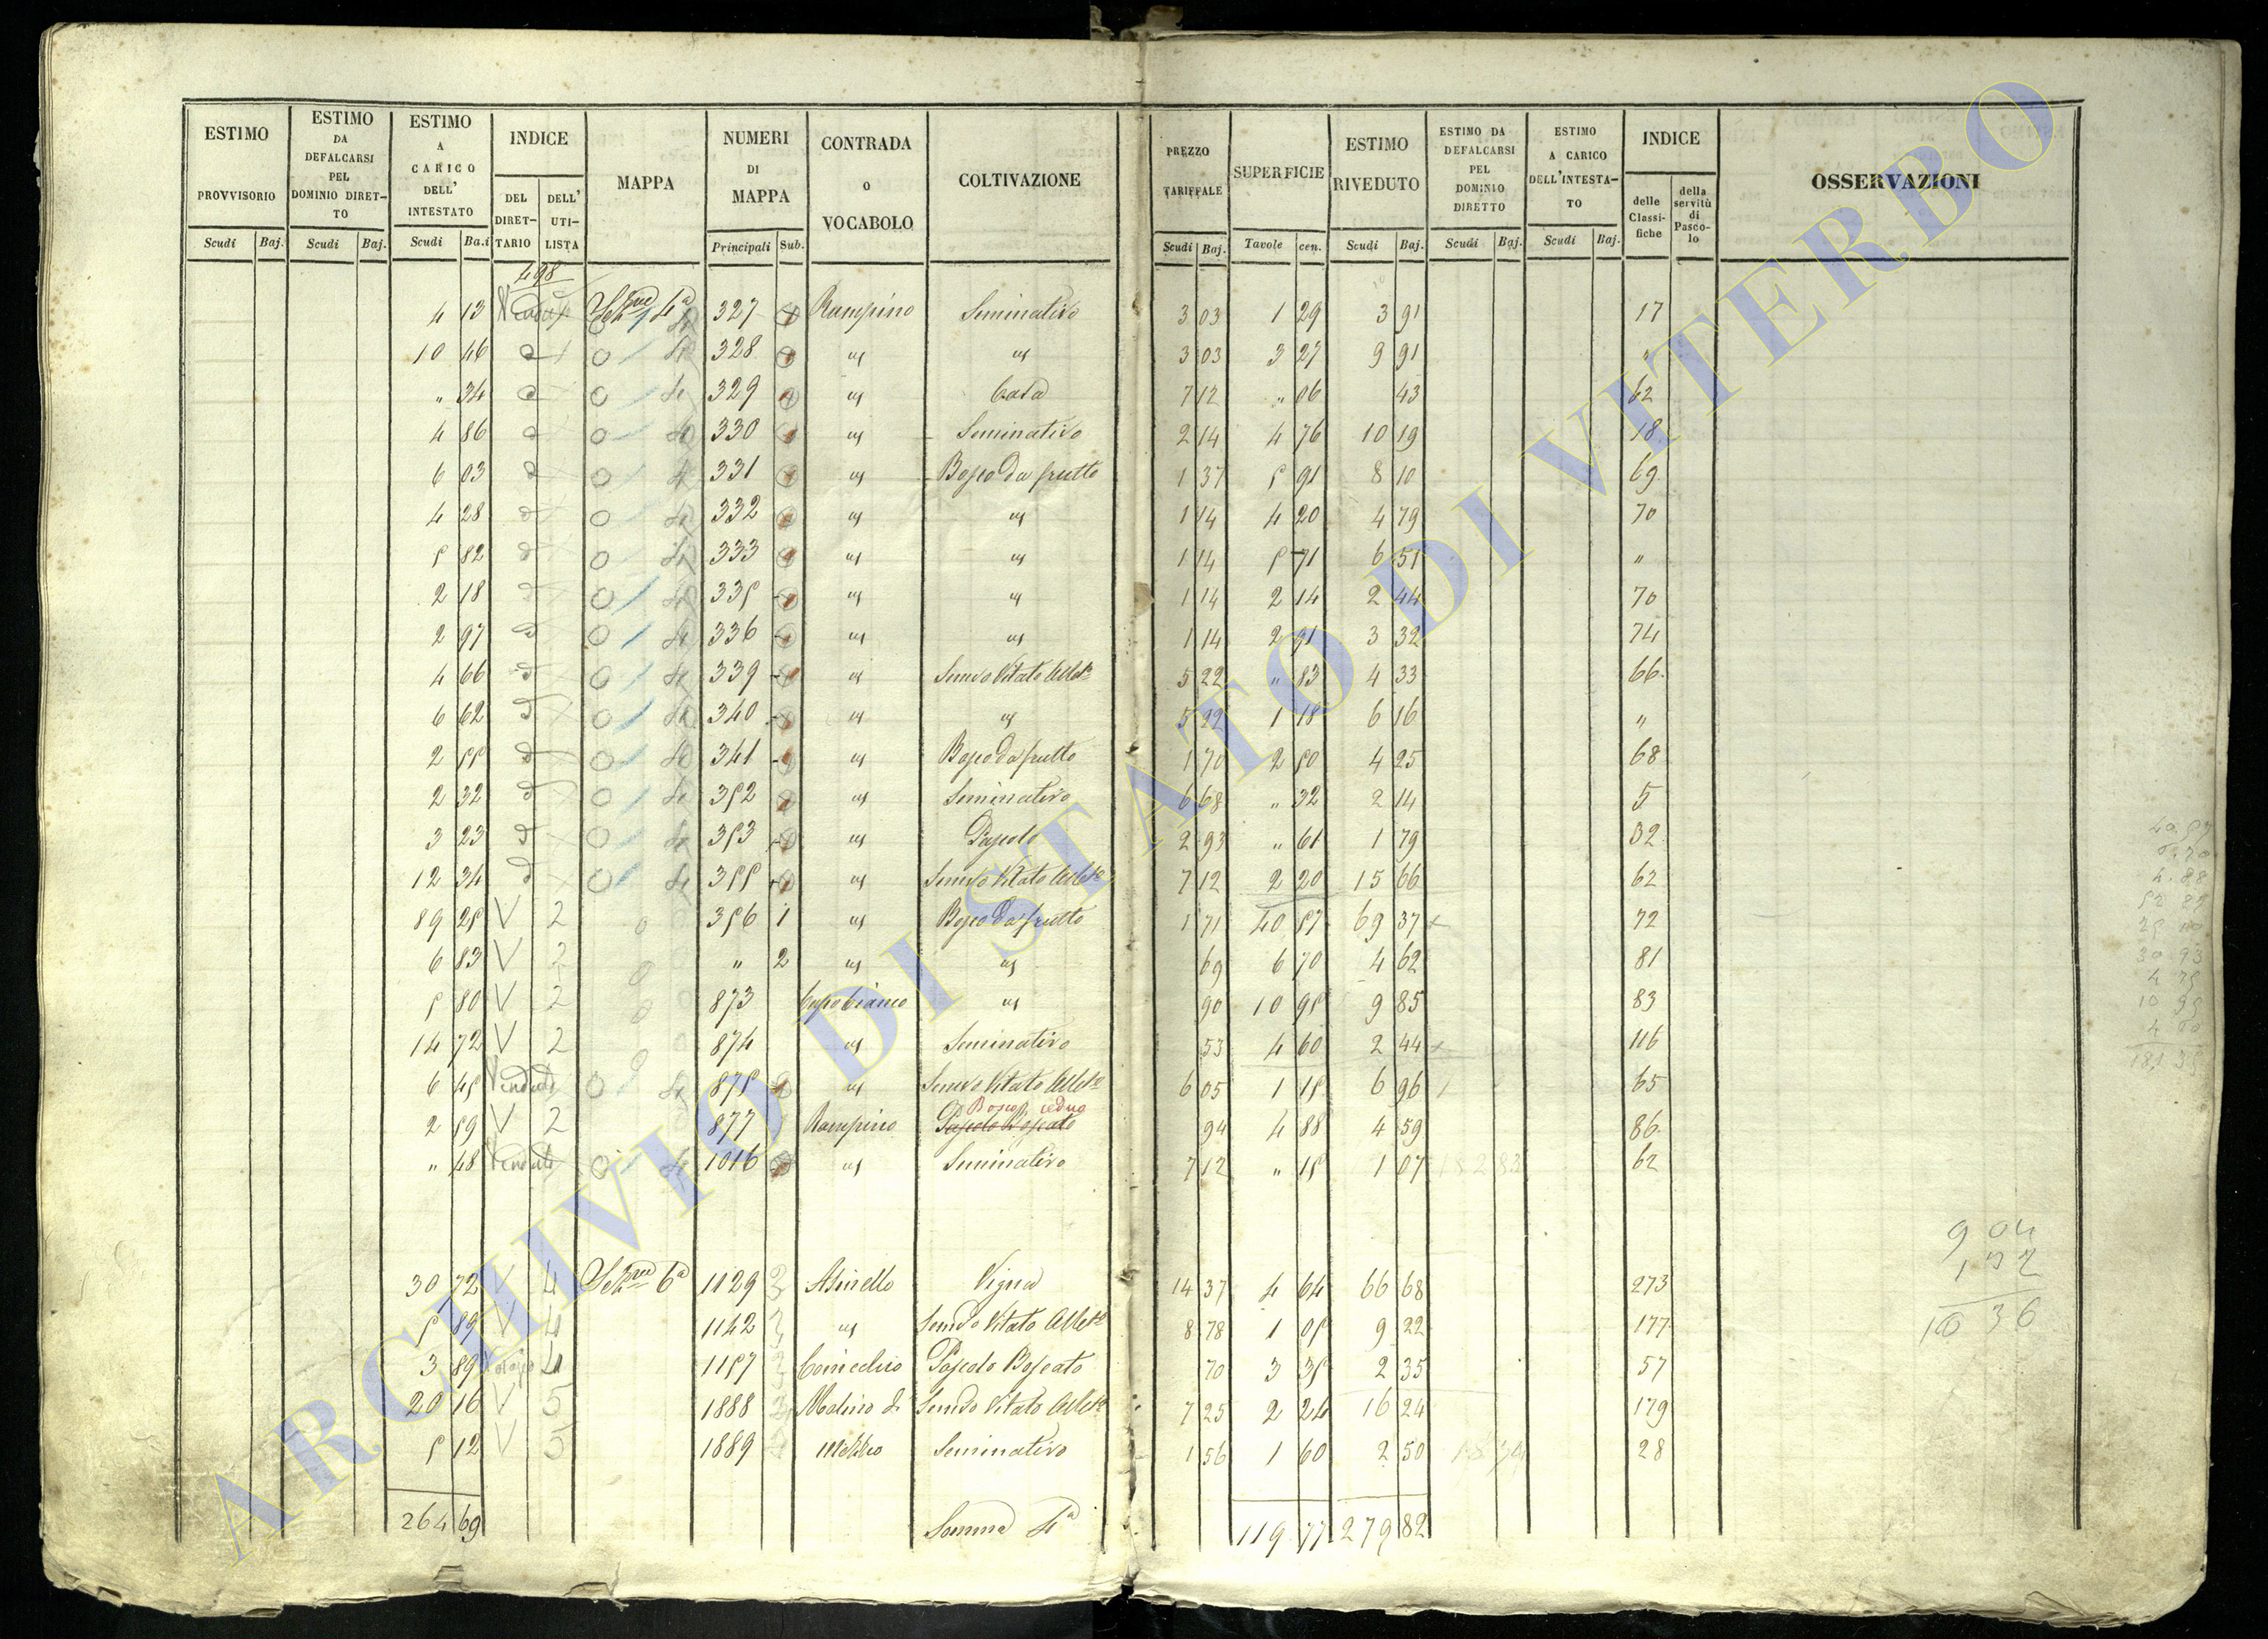 ESTIMO PROVVISORIO
ESTIMO DA DEFALCARSI PEL DOMINIO DIRET-TO
ESTIMO A CARICO DELL' INTESTATO
INDICE
DEL DIRET-TARIO
DELL' UTI-LISTA
MAPPA
NUMERI DI MAPPA
CONTRADA O VOCABOLO
COLTIVAZIONE
PREZZO TARIFFALE
SUPERFICIE
ESTIMO RIVEDUTO
ESTIMO DA DEFALCARSI PEL DOMINIO DIRETTO
ESTIMO A CARICO DELL'INTESTA-TO
INDICE
delle Classi-fiche
della servitù di Pasco-lo
OSSERVAZIONI
Scudi Baj. Scudi Baj. Scudi Ba.i Principali Sub. Scudi Baj. Tavole cen. Scudi Baj. Scudi Baj. Scudi Baj.
498
4 13 Venduto Sezne 4a 327 Rampino Seminativo 3 03 1 29 3 91 17
10 46 d 328 " " 3 03 3 27 9 91 "
" 34 d 329 " Casa 7 12 " 06 43 62
4 86 d 330 " Seminativo 2 14 4 76 10 19 18
6 03 d 331 " Bosco Da frutto 1 37 5 91 8 10 69
4 28 d 332 " " 1 14 4 20 4 79 70
5 82 d 333 " " 1 14 5 71 6 51 "
2 18 d 335 " " 1 14 2 14 2 44 70
2 97 d 336 " " 1 14 2 91 3 32 74
4 66 d 339 " Semvo Vitato Albto 5 22 " 83 4 33 66
6 62 d 340 " " 5 22 1 18 6 16 "
2 55 d 341 " Bosco Da frutto 1 70 2 50 4 25 68
2 32 d 352 " Seminativo 6 68 " 32 2 14 5
3 23 d 353 " Pascolo 2 93 " 61 1 79 32
12 34 d 355 " Semvo Vitato Albto 7 12 2 20 15 66 62
89 25 V 2 356 1 " Bosco Da frutto 1 71 40 57 69 37 72
6 83 V 2 " 2 " " 69 6 70 4 62 81
5 80 V 2 873 Capobianco " 90 10 95 9 85 83
14 72 V 2 874 " Seminativo 53 4 60 2 44 116
6 45 Venduto 875 " Semvo Vitato Albto 6 05 1 15 6 96 65
Bosco ceduo
2 59 V 2 877 Rampino Pascolo Boscato 94 4 88 4 59 86
" 48 Venduto 1016 " Seminativo 7 12 " 15 1 07 182 83 62
30 72 V 4 Sezne 6a 1129 Asinello Vigna 14 37 4 64 66 68 273
5 89 V 4 1142 " Semvo Vitato Albto 8 78 1 05 9 22 177
3 89 4 1157 Pascolo Boscato 70 3 35 2 35 57
20 16 V 5 1888 Molino di Semvo Vitato Albto 7 25 2 24 16 24 179
5 12 V 5 1889 Seminativo 1 56 1 60 2 50 28
264 69 Somma 4a 119 77 279 82
9 04
1 32
10 36
ARCHIVIO DI STATO DI VITERBO